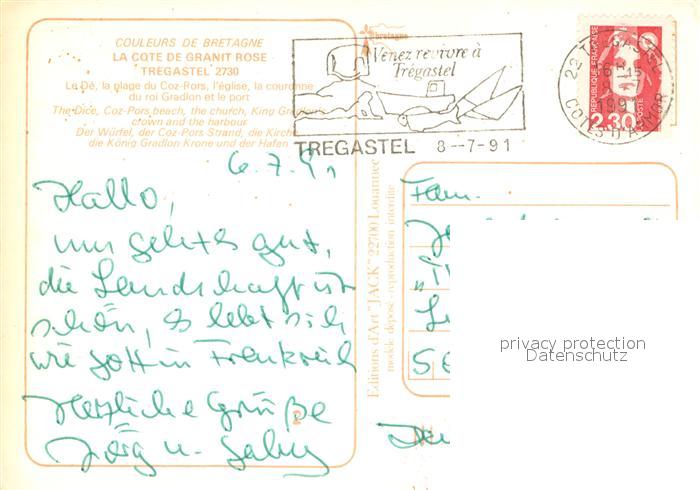 COULEURS DE BRETAGNE
LA COTE DE GRANIT ROSE
TREGASTEL 2730
Le Dé, la plage du Coz-Pors, l'église, la couronne
du roi Gradlon et le port
The Dice, Coz-Pors beach, the church, King Gradlon
crown and the harbour
Der Würfel, der Coz-Pors Strand, die Kirche
die König Gradlon Krone und der Hafen
bretagne
Venez revivre à
Trégastel
TREGASTEL 8--7-91
22 TREGASTEL
COTES D'ARMOR
REPUBLIQUE FRANÇAISE
LA POSTE
2.30
6.7.91
Hallo,
uns geht es gut,
die Landschaft ist
schön, es lebt sich
wie Gott in Frankreich
Herzliche Grüße
Jörg u.
Editions d'Art "JACK" 22700 Louannec
modèle déposé - reproduction interdite
Fam.
privacy protection
Datenschutz